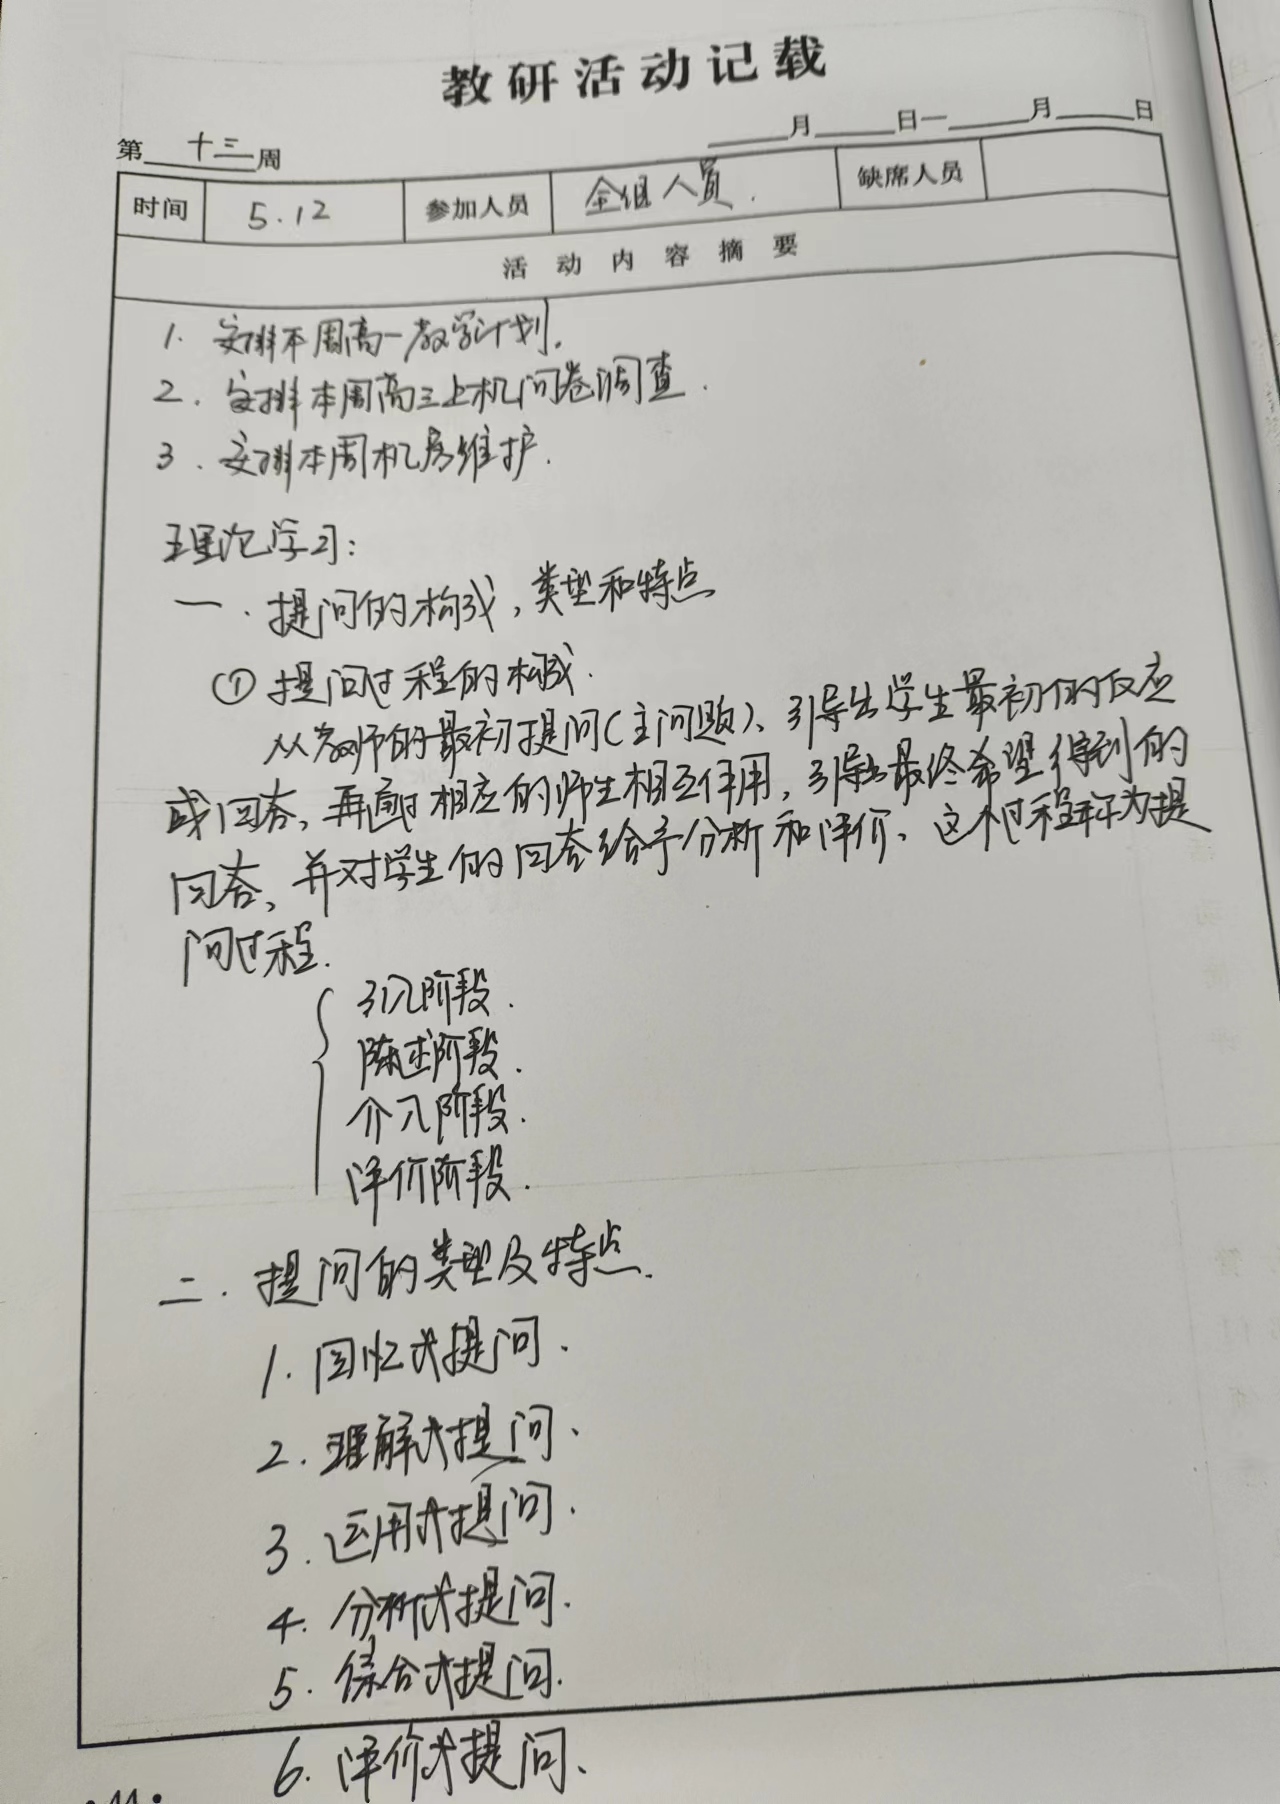 教研活动记载
第十三周 月 日— 月 日
时间 5.12 参加人员 全组人员. 缺席人员
活动内容摘要
1. 安排本周高一教学计划.
2. 安排本周高三上机问卷调查.
3. 安排本周机房维护.
理论学习:
一. 提问的构成,类型和特点
① 提问过程的构成.
从教师的最初提问(主问题)、引导出学生最初的反应
或回答、再通过相应的师生相互作用,引导出最终希望得到的
回答、并对学生的回答给予分析和评价、这个过程称为提
问过程.
引入阶段.
陈述阶段.
介入阶段.
评价阶段.
二. 提问的类型及特点.
1. 回忆式提问.
2. 理解式提问、
3. 运用式提问.
4. 分析式提问.
5. 综合式提问.
6. 评价式提问、